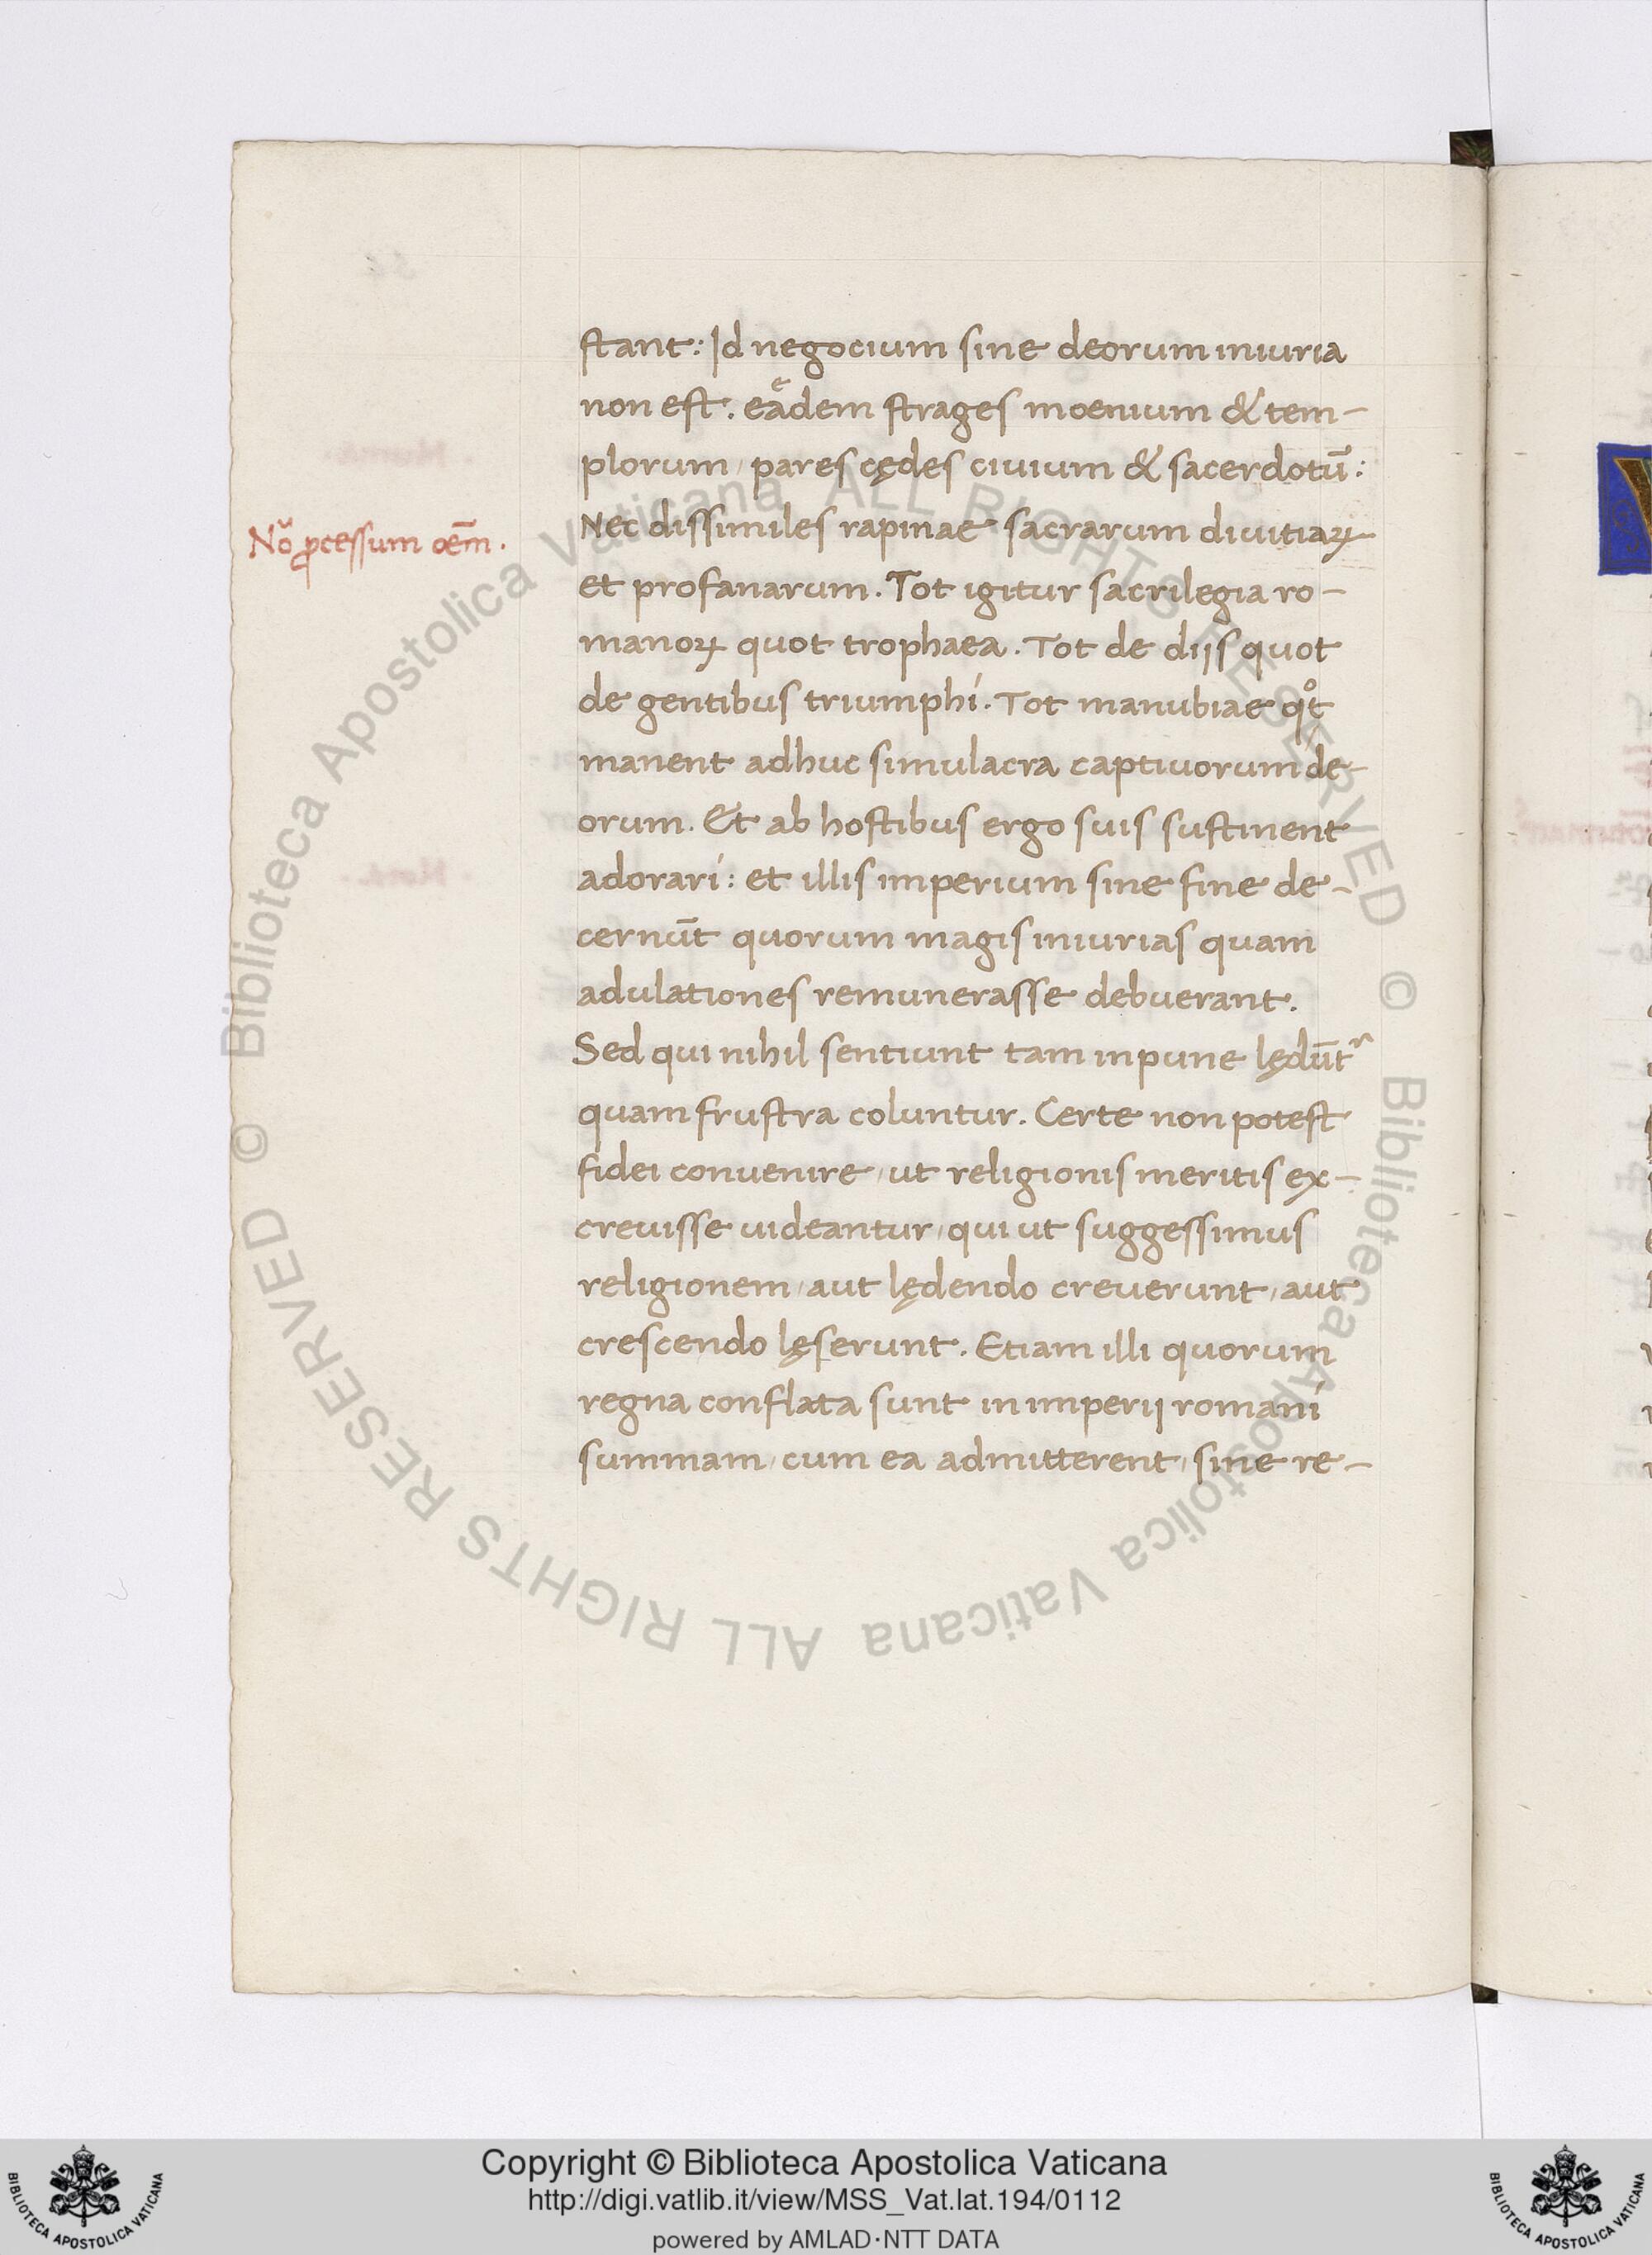 stant: Id negocium sine deorum iniuria
non est. eͤadem strages moenium & tem-
plorum, pares cędes ciuium & sacerdotū:
Nŏ ꝓcessum oēm.
Nec dissimiles rapinae sacrarum diuitiaꝝ
et profanarum. Tot igitur sacrilegia ro-
manoꝝ quot trophaea. Tot de dijs quot
de gentibus triumphi. Tot manubiae qͦt
manent adhuc simulacra captiuorum de-
orum. Et ab hostibus ergo suis sustinent
adorari: et illis imperium sine fine de-
cernūt quorum magis iniurias quam
adulationes remunerasse debuerant.
Sed qui nihil sentiunt tam inpune lędūtᷣ
quam frustra coluntur. Certe non potest
fidei conuenire, ut religionis meritis ex-
creuisse uideantur, qui ut suggessimus
religionem, aut lędendo creuerunt, aut
crescendo lęserunt. Etiam illi quorum
regna conflata sunt in imperij romani
summam, cum ea admitterent, sine re-
© Biblioteca Apostolica Vaticana ALL RIGHTS RESERVED
© Biblioteca Apostolica Vaticana ALL RIGHTS RESERVED
Copyright © Biblioteca Apostolica Vaticana
http://digi.vatlib.it/view/MSS_Vat.lat.194/0112
powered by AMLAD·NTT DATA
BIBLIOTECA APOSTOLICA VATICANA
BIBLIOTECA APOSTOLICA VATICANA